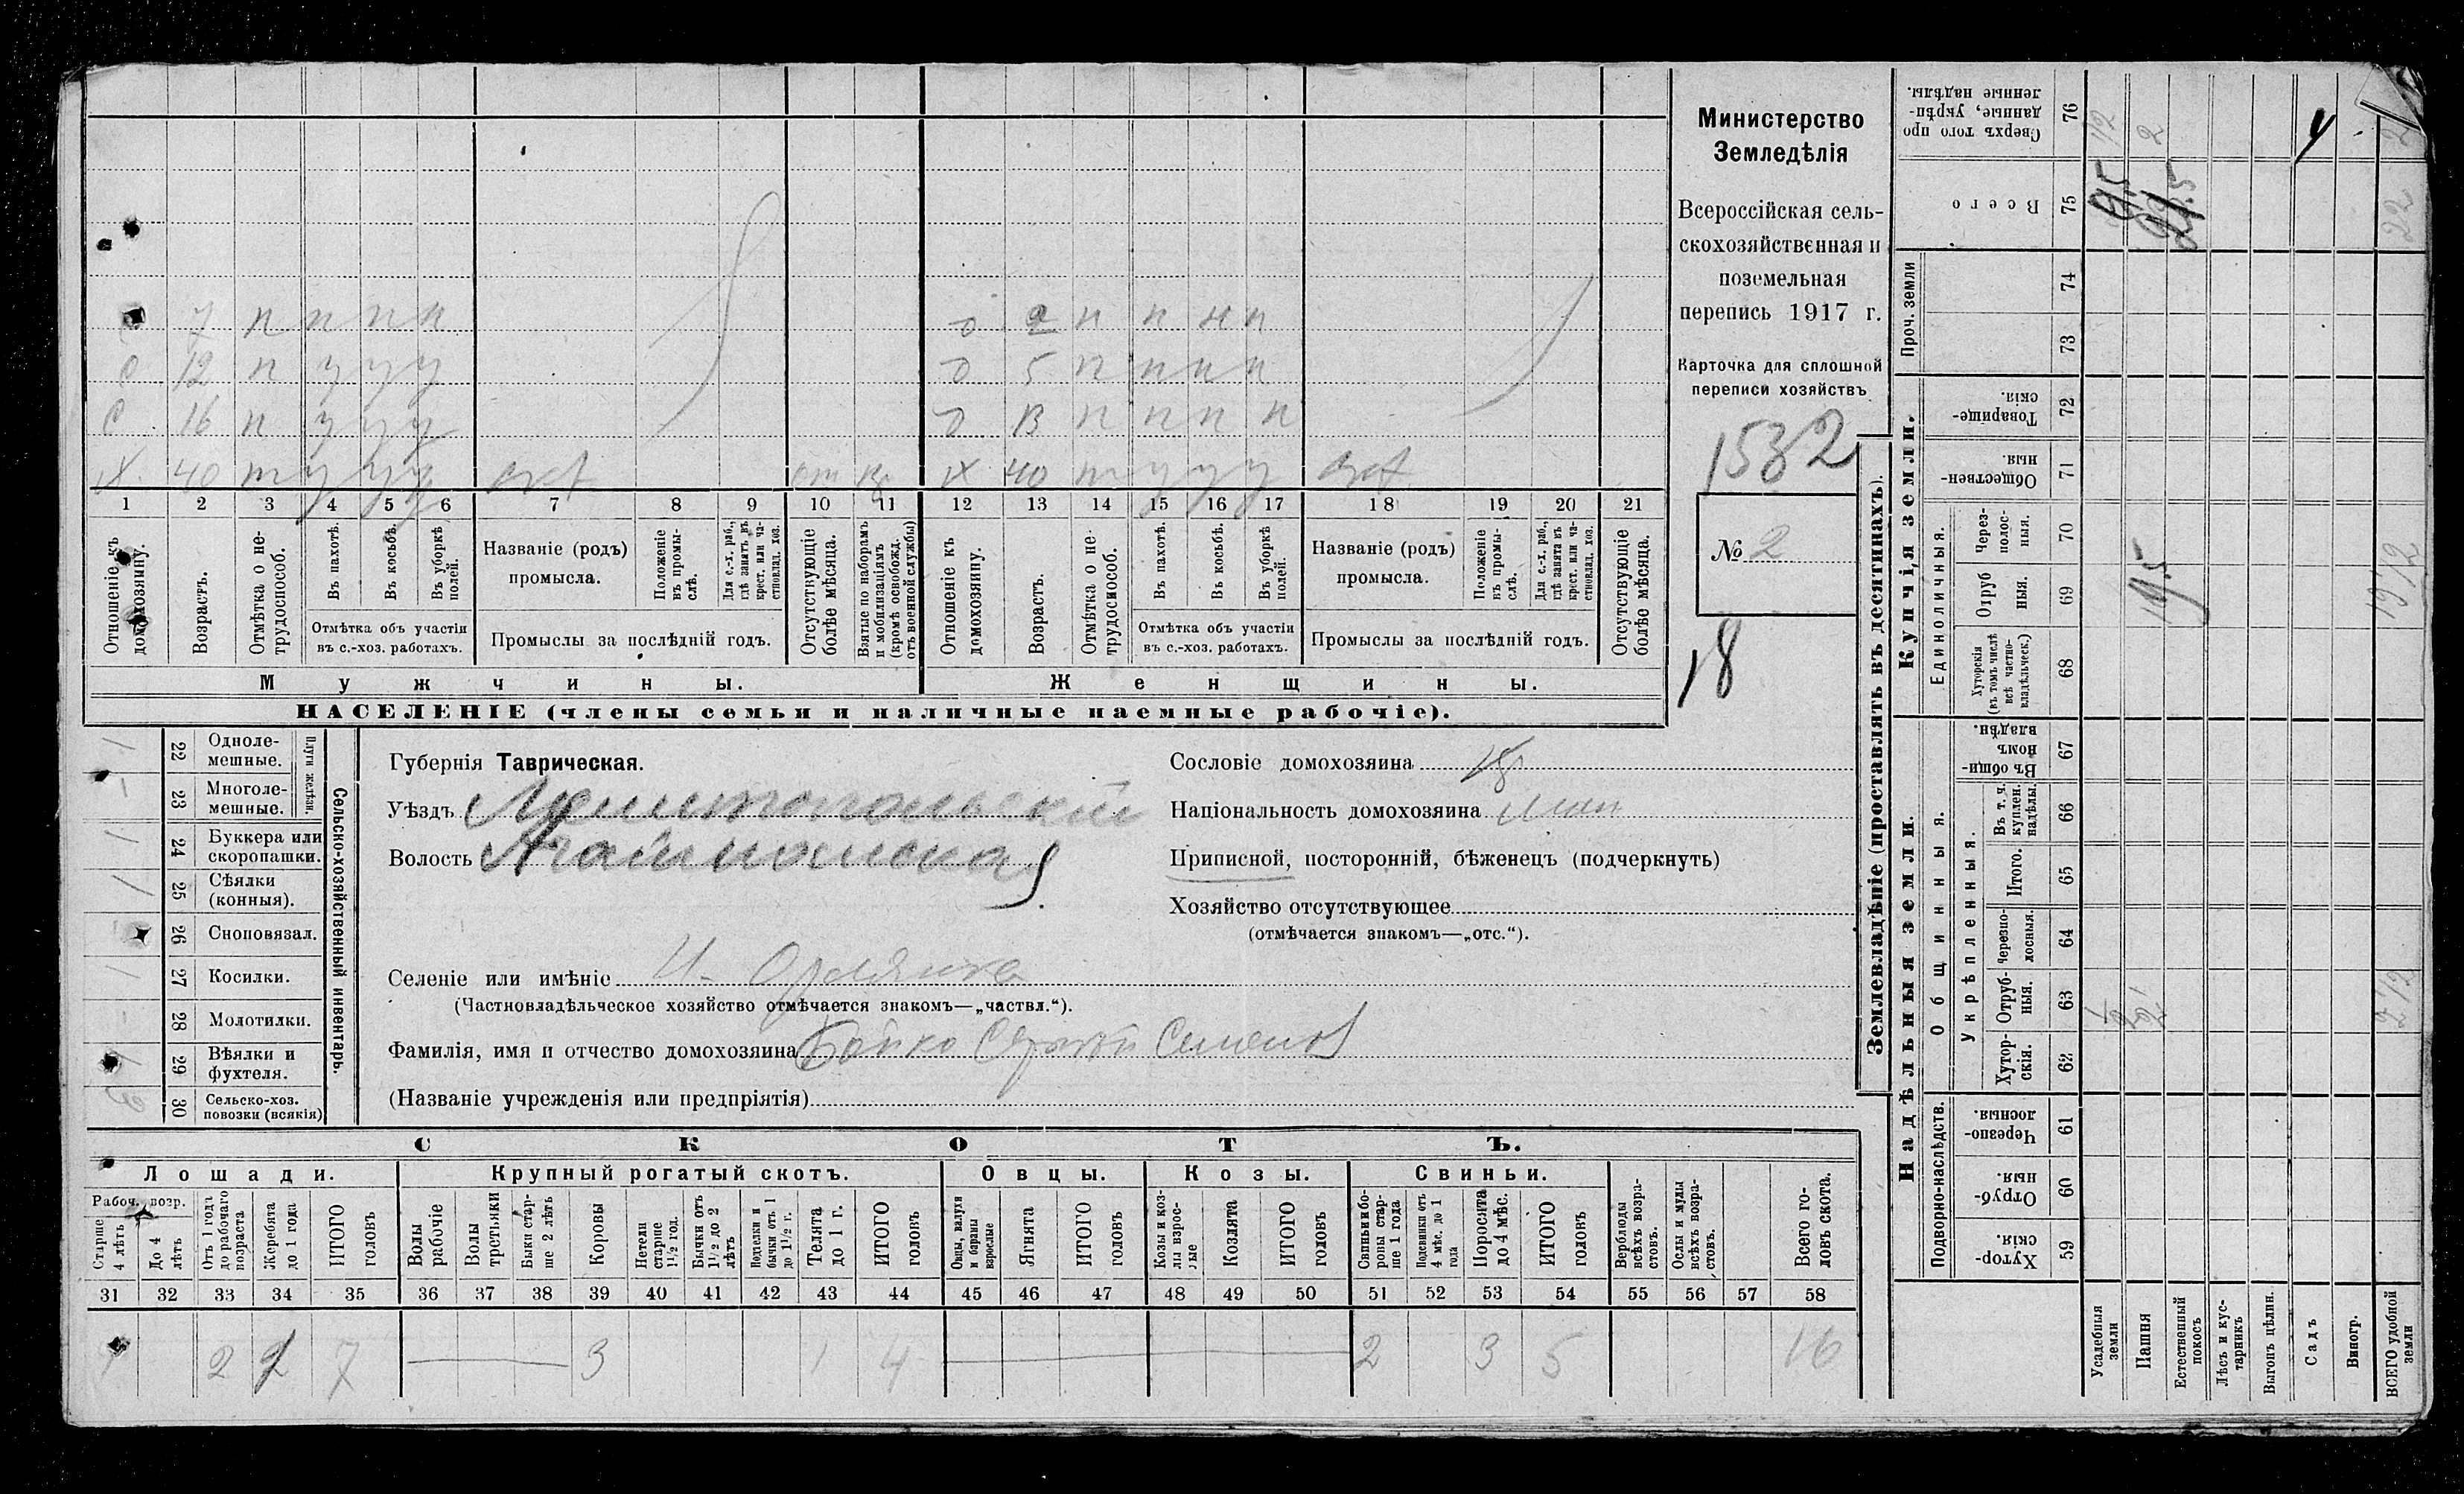 7 п п п п
2 п п н п
с 12 п у у у
5 п п п п
с 16 п у у у
13 п п п п
40 т у у у
40 т у у у
1 2 3 4 5 6 7 8 9 10 11 12 13 14 15 16 17 18 19 20 21
Отношеніе къ домохозяину.
Возрастъ.
Отмѣтка о не-
трудоспособ.
Въ пахотѣ.
Въ косьбѣ.
Въ уборкѣ
полей.
Отмѣтка объ участіи
въ с.-хоз. работахъ.
Названіе (родъ)
промысла.
Положеніе
въ промы-
слѣ.
Для с.-х. раб.,
гдѣ занятъ въ
крест. или ча-
стновлад. хоз.
Промыслы за послѣдній годъ.
Отсутствующіе
болѣе мѣсяца.
Взятые по наборамъ
и мобилизаціямъ
(кромѣ освобожд.
отъ военной службы)
Отношеніе къ
домохозяину.
Возрастъ.
Отмѣтка о не-
трудоспособ.
Въ пахотѣ.
Въ косьбѣ.
Въ уборкѣ
полей.
Отмѣтка объ участіи
въ с.-хоз. работахъ.
Названіе (родъ)
промысла.
Положеніе
въ промы-
слѣ.
Для с.-х. раб.,
гдѣ занята въ
крест. или ча-
стновлад. хоз.
Промыслы за послѣдній годъ.
Отсутствующіе
болѣе мѣсяца.
Мужчины.
Женщины.
НАСЕЛЕНІЕ (члены семьи и наличные наемные рабочіе).
Министерство
Земледѣлія
Всероссійская сель-
скохозяйственная и
поземельная
перепись 1917 г.
Карточка для сплошной
переписи хозяйствъ
1532
№ 2
18
Сельско-хозяйственный инвентарь.
Плуги желѣзн.
22 Однолемешные.
23 Многоле-
мешные.
24 Буккера или
скоропашки.
25 Сѣялки
(конныя).
26 Сноповязал.
27 Косилки.
28 Молотилки.
29 Вѣялки и
фухтеля.
30 Сельско-хоз.
повозки (всякія)
Губернія Таврическая.
Уѣздъ Мелитопольскій
Волость
Селеніе или имѣніе Н-Орлянка
(Частновладѣльческое хозяйство отмѣчается знакомъ—„частвл.“).
Фамилія, имя и отчество домохозяина Бойко Сергѣй Семенов
(Названіе учрежденія или предпріятія)
Сословіе домохозяина
Національность домохозяина
Приписной, посторонній, бѣженецъ (подчеркнуть)
Хозяйство отсутствующее
(отмѣчается знакомъ—„отс.“).
СКОТЪ.
Лошади.
Крупный рогатый скотъ.
Овцы.
Козы.
Свиньи.
Рабоч. возр.
Старше
4 лѣтъ
До 4
лѣтъ
Отъ 1 года
до рабочаго
возраста
Жеребята
до 1 года
ИТОГО
головъ
Волы
рабочіе
Волы
третьяки
Быки стар-
ше 2 лѣтъ
Коровы
Нетели
старше
1½ год.
Бычки отъ
1½ до 2
лѣтъ
Подтелки и
бычки отъ 1
до 1½ г.
Телята
до 1 г.
ИТОГО
головъ
Овцы, валухи
и бараны
взрослые
Ягнята
ИТОГО
головъ
Козы и коз-
лы взрос-
лые
Козлята
ИТОГО
головъ
Свиньи и бо-
ровы стар-
ше 1 года
Подсвинки отъ
4 мѣс. до 1
года
Поросята
до 4 мѣс.
ИТОГО
головъ
Верблюды
всѣхъ возра-
стовъ.
Ослы и мулы
всѣхъ возра-
стовъ.
Всего го-
ловъ скота.
31 32 33 34 35 36 37 38 39 40 41 42 43 44 45 46 47 48 49 50 51 52 53 54 55 56 57 58
2 2 7 3 1 4 2 3 5 16
Землевладѣніе (проставлять въ десятинахъ).
Надѣльныя земли.
Купчія земли.
Проч. земли
Подворно-наслѣдств.
Общинныя.
Укрѣпленныя.
Единоличныя.
Хутор-
скія.
59
Отруб-
ныя.
60
Черезпо-
лосныя.
61
Хутор-
скія.
62
Отруб-
ныя.
63
Черезпо-
лосныя.
64
Итого.
65
Въ т. ч.
куплен.
надѣлы.
66
Въ общин-
номъ
владѣн.
67
Хуторскія
(въ томъ числѣ
всѣ частно-
владѣльческ.)
68
Отруб
ныя.
69
Через-
полос-
ныя.
70
Обществен-
ныя.
71
Товарище-
скія.
72
73
74
Всего
75
Сверхъ того про
данные, укрѣп-
ленные надѣлы.
76
Усадебныя
земли
Пашня
Естественный
покосъ
Лѣсъ и кус-
тарникъ
Выгонъ цѣлин.
Садъ
Виногр.
ВСЕГО удобной
земли
19,5
19½
2½
22
2